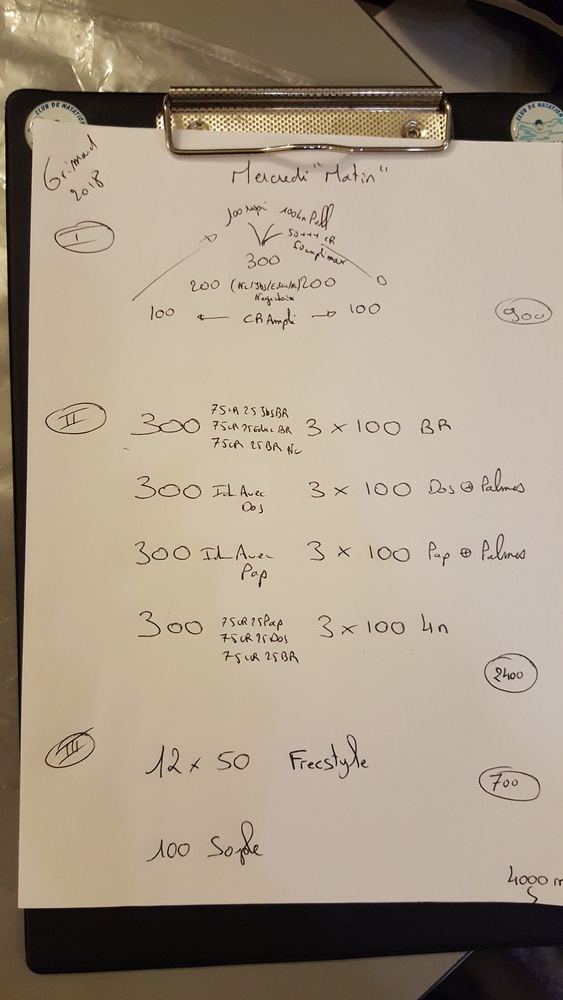 CLUB DE NATATION
CLUB DE NATAT
Grimaud
2018
Mercredi "Matin"
I
100 4n Pull
50+++ CR
50 ampli max
300
200 200
Nage
100 CR Ampli 100
900
II
300 75 CR 25 Jbs BR 3 x 100 BR
75 CR 25 Educ BR
75 CR 25 BR Nc
300 Id Avec 3 x 100 Dos ⊕ Palmes
Dos
300 Id Avec 3 x 100 Pap ⊕ Palmes
Pap
300 75 CR 25 Pap 3 x 100 4n
75 CR 25 Dos
75 CR 25 BR
2400
III
12 x 50 Freestyle
700
100 Sople
4000 m